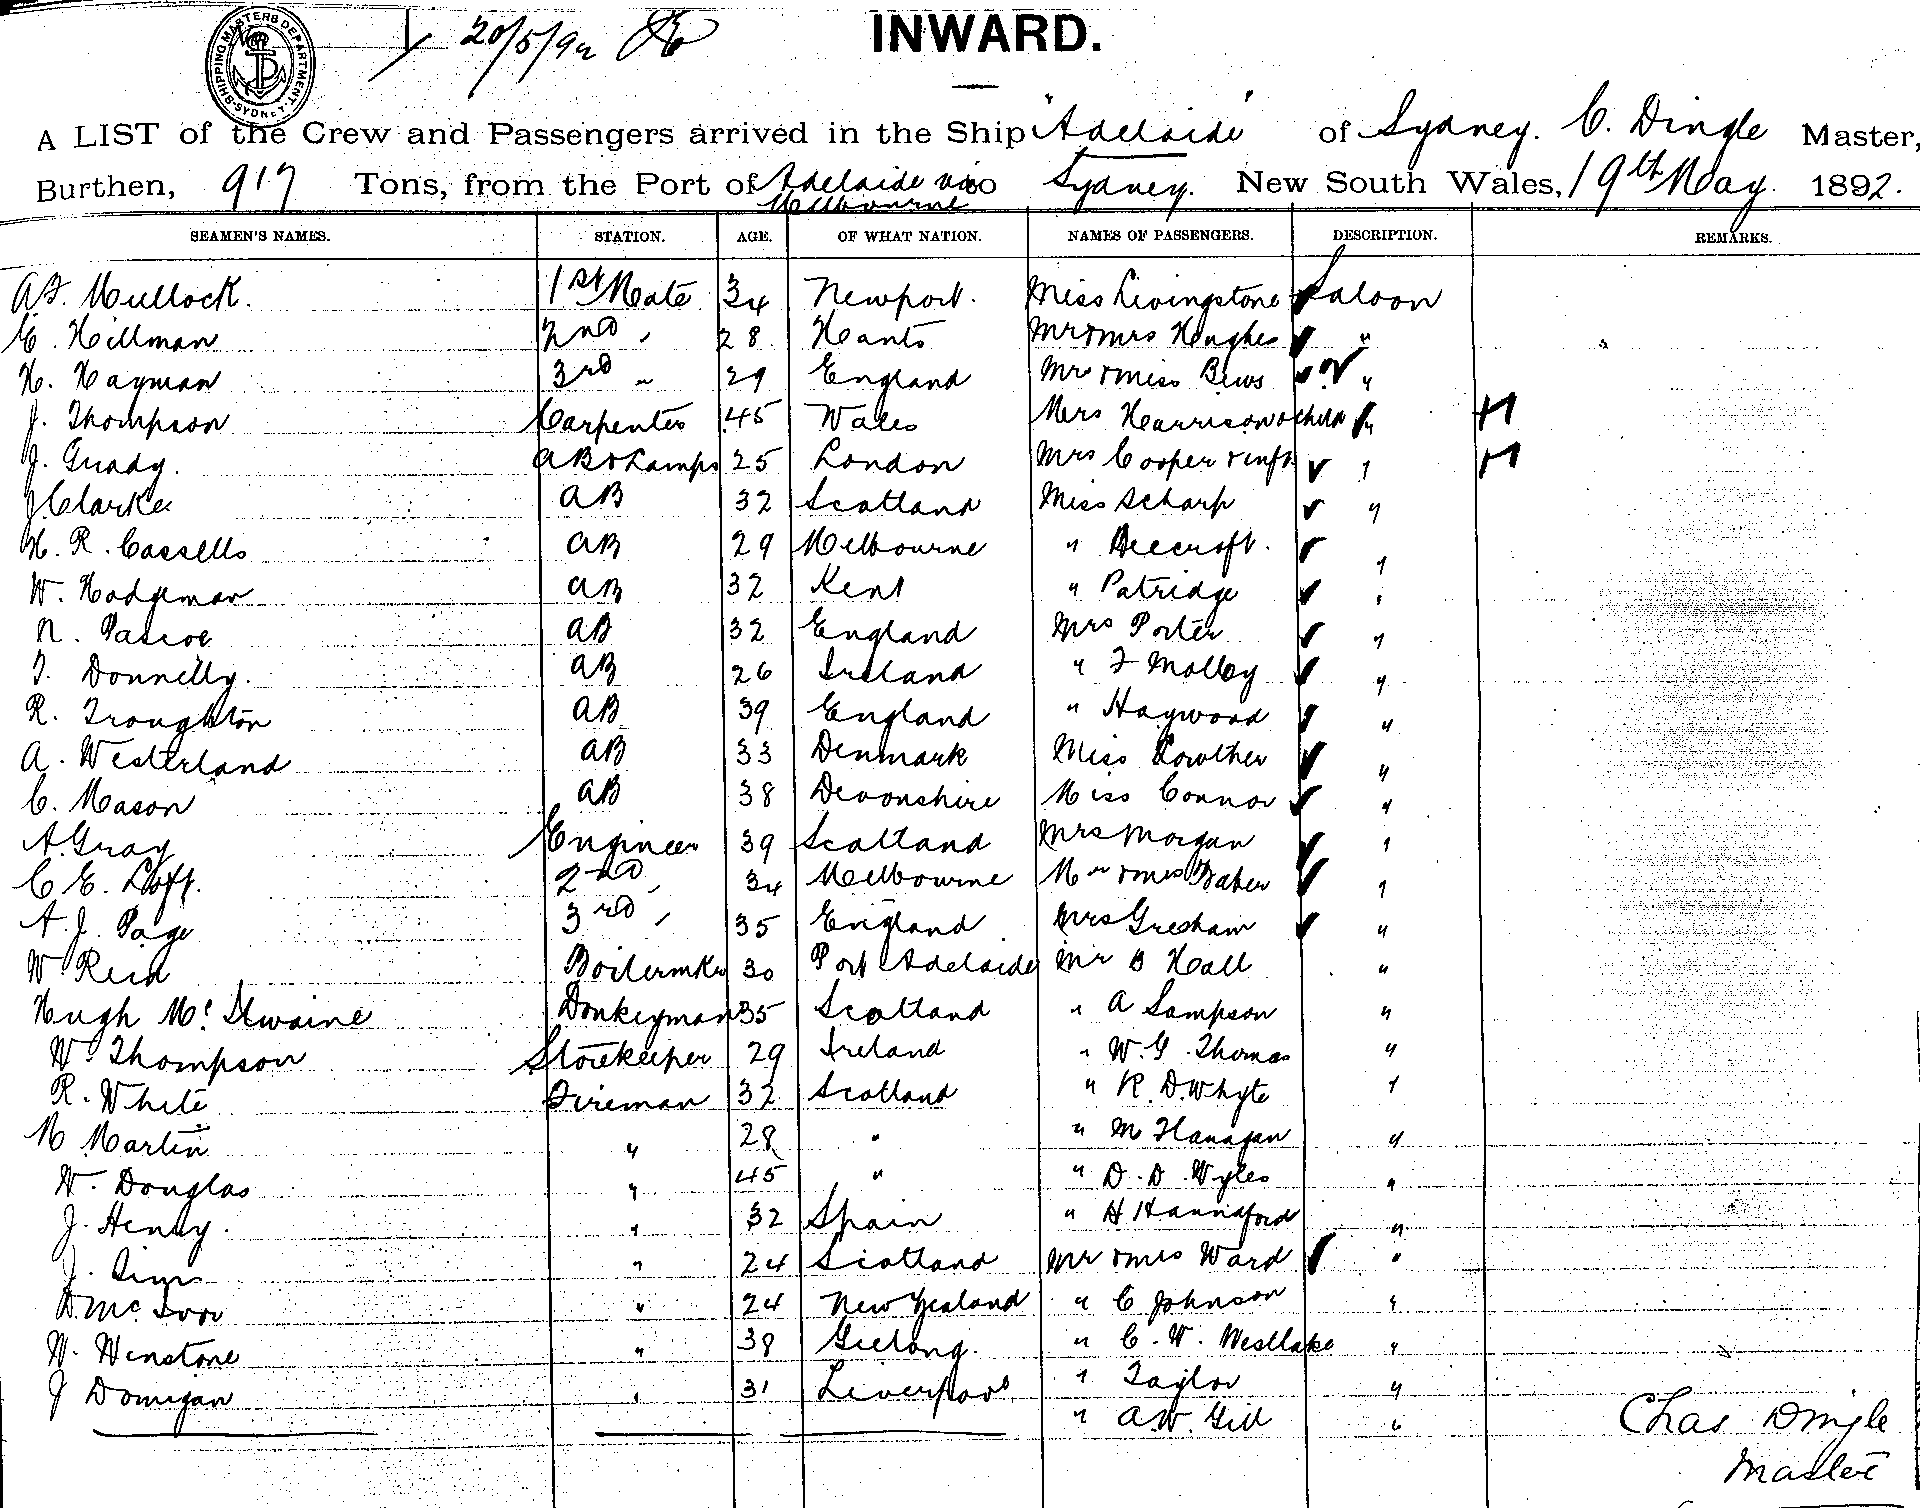 SHIPPING MASTERS DEPARTMENT. SYDNEY
20/5/92
INWARD.
A LIST of the Crew and Passengers arrived in the Ship "Adelaide" of Sydney. C. Dingle Master,
Burthen, 917 Tons, from the Port of Adelaide via Melbourne to Sydney. New South Wales, 19th May 1892.
SEAMEN'S NAMES. STATION. AGE. OF WHAT NATION. NAMES OF PASSENGERS. DESCRIPTION. REMARKS.
A.F. Mullock. 1st Mate 34 Newport. Miss Livingstone Saloon
E. Hillman 2nd " 28 Hants Mr & Mrs Hughes "
H. Hayman 3rd " 29 England Mr & Miss Bews 2 "
J. Thompson Carpenter 45 Wales Mrs Harrison & child "
J. Grady. AB & Lamps 25 London Mrs Cooper & inft "
J Clarke AB 32 Scotland Miss Scharp "
H. R. Cassells AB 29 Melbourne " Beecroft. "
W. Hodgeman AB 32 Kent " Patridge "
N. Pascoe AB 32 England Mrs Porter "
T. Donnelly. AB 26 Ireland " F Molloy "
R. Troughton AB 39 England " Haywood "
A. Westerland AB 33 Denmark Miss Lowther "
C. Mason AB 38 Devonshire Miss Connor "
A. Gray Engineer 39 Scotland Mrs Morgan "
C. E. Loft. 2nd " 34 Melbourne Mr & Mrs Baker "
A. J. Page 3rd " 35 England Mrs Gresham "
W Reid Boilermkr 30 Port Adelaide Mr B Hall "
Hugh Mc Ilwaine Donkeyman 35 Scotland " A Sampson "
W. Thompson Storekeeper 29 Ireland " W. G. Thomas "
R. White Fireman 32 Scotland " R. D. Whyte "
M Martin " 28 " " M Flanagan "
W. Douglas " 45 " " D. D. Wyles "
J. Henry. " 32 Spain " H Hannaford "
J. Sim " 24 Scotland Mr & Mrs Ward "
D. McIvor " 24 New Zealand " C Johnson "
W. Winstone " 38 Geelong. " C. W. Westlake "
J Domigan " 31 Liverpool " Taylor "
" A.W. Gill "
Chas Dingle
Master